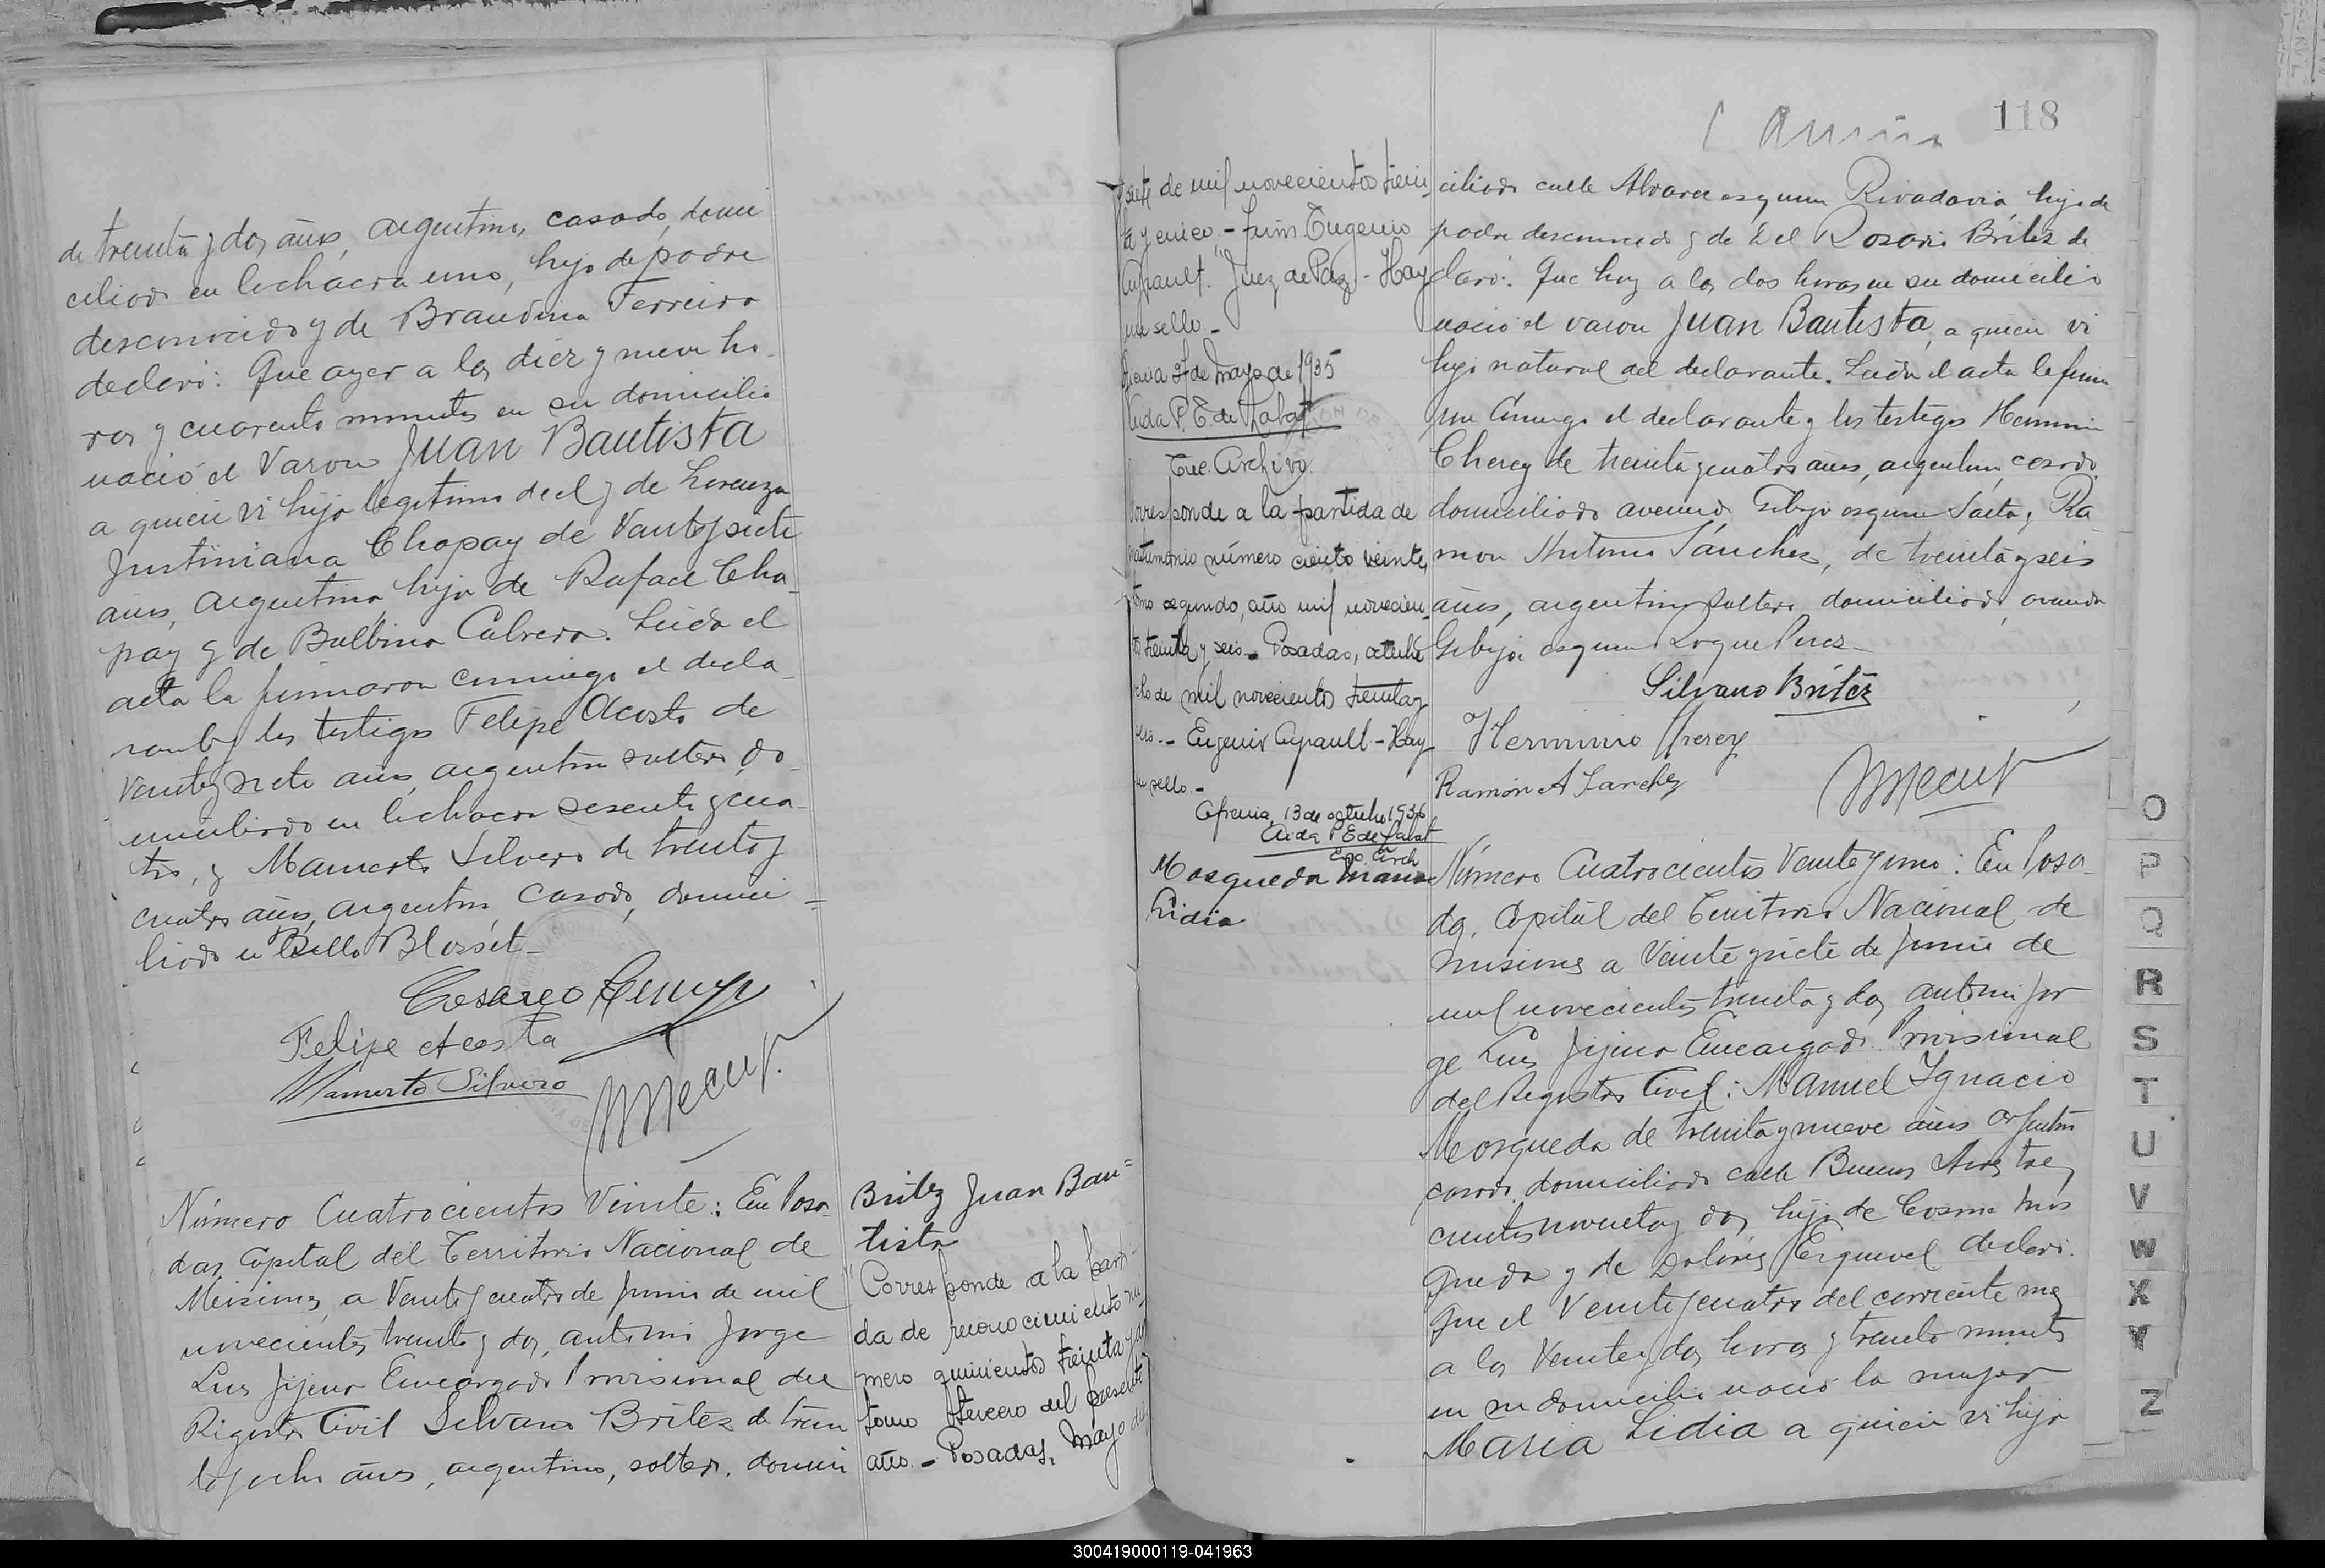 de treinta y dos años, argentino, casado, domi
ciliado en la chacra uno, hijo de padre
desconocido y de Brandina Ferreira
declaró: Que ayer a las diez y nueve ho
ras y cuarenta minutos en su domicilio
nació el varon Juan Bautista
a quien vi hijo legitimo de el y de Lorenza
Justiniana Chapay de veinte y siete
años, argentina, hija de Rafael Cha
pay y de Balbina Cabrera. Leída el
acta la firmaron conmigo el decla
rante y los testigos Felipe Acosta de
veinte y siete años, argentino soltero, do
miciliado en la chacra sesenta y cua
tro, y Mamerto Silvero de treinta y
cuatro años, argentino, casado, domici=
liado en Villa Blosset_
Cesareo
Felipe Acosta
Mamerto Silvero
Número Cuatrocientos Veinte: En Posa
das, Capital del Territorio Nacional de
Misiones, a veinte y cuatro de Junio de mil
novecientos treinta y dos, ante mi Jorge
Luis Jijena Encargado Provisional del
Registro Civil Silvano Britez de trein
ta y ocho años, argentino, soltero, domici
Britez Juan Bau=
tista
Corresponde a la parti
da de reconocimiento nu
mero quinientos treinta y
tomo tercero del presente
año.- Posadas, Mayo
118
siete de mil novecientos trein
ta y cinco.- Firm: Eugenio
Apault. Juez de Paz - Hay
un sello.-
de Mayo de 1935
Aida P. E. de Labat
Enc. Archivo.
Corresponde a la partida de
matrimonio número ciento veinte,
tomo segundo, año mil novecien
tos treinta y seis.- Posadas, octubre
ocho de mil novecientos treinta y
seis.- Eugenio Apault - Hay
un sello.-
13 de octubre 1936
Aida P E de Labat
Enc. Arch
Mosqueda Maria
Lidia
ciliado calle Alvarez esquina Rivadavia hijo de
padre desconocido y de Del Rosario Britez de
claró: Que hoy a las dos horas en su domicilio
nació el varon Juan Bautista, a quien vi
hijo natural del declarante. Leida el acta la firma
ron conmigo el declarante y los testigos Herminio
Cherey de treinta y cuatro años, argentino, casado
domiciliado avenida Gibaja esquina Salta, Ra
mon Antonio Sánchez, de treinta y seis
años, argentino, soltero, domiciliado, avenida
Gibaja esquina Roque Perez_
Silvano Britez
Herminio Cherey
Ramon A Sanchez
Número Cuatrocientos Veinte y uno: En Posa
das, Capital del Territorio Nacional de
Misiones a Veinte y siete de Junio de
mil novecientos treinta y dos, ante mi Jor
ge Luis Jijena Encargado Provisional
del Registro Civil: Manuel Ignacio
Mosqueda de treinta y nueve años argentino
casado, domiciliado calle Buenos Aires tres
cientos noventa y dos, hijo de Cosme Mos
queda y de Dolores Esquivel declaró.
Que el Veinte y cuatro del corriente mes
a las Veinte y dos horas y treinta minutos
en su domicilio nació la mujer
Maria Lidia a quien vi hija
O
P
Q
R
S
T
U
V
W
X
Y
Z
300419000119-041963